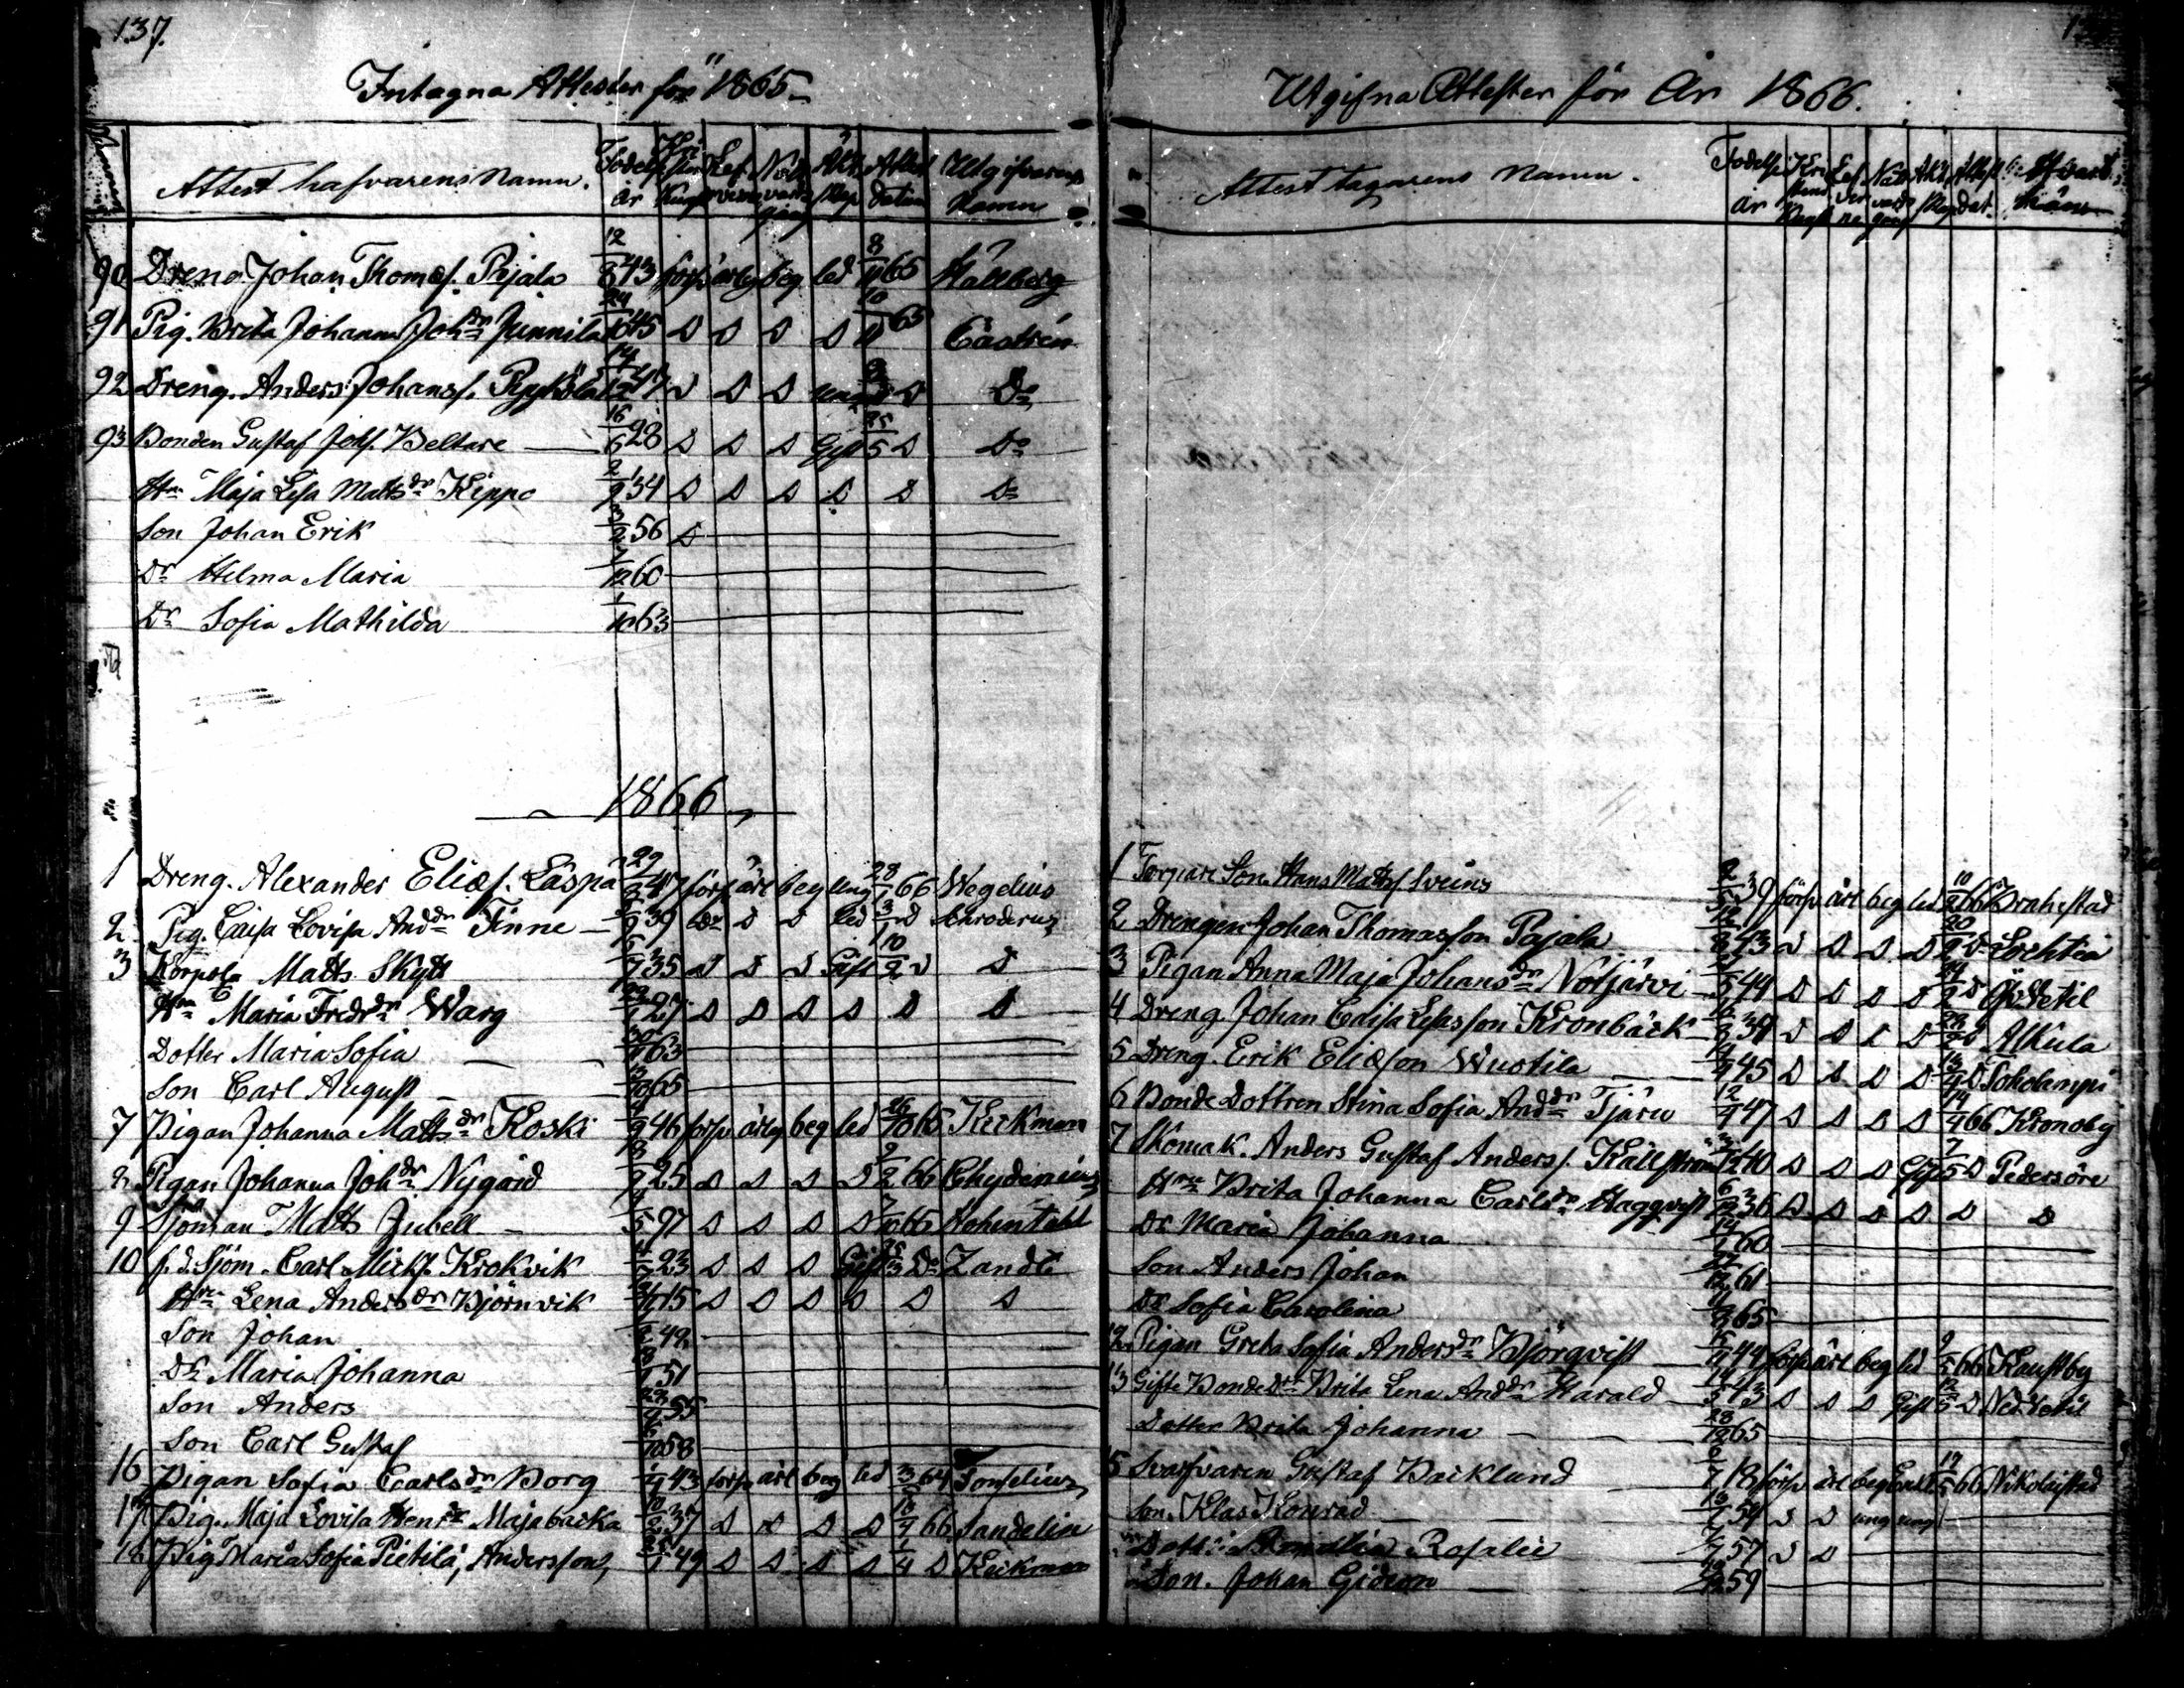 137.
Intagna Attester för 1865
Nummer
Attest hafvarens Namn.
Födelse år
Kristen Kunsk
Lefverne
Nattvardsgång
Äkt skap
Attest datum
Utgifvarens Namn
90 Dreng Johan Thomæs. Pajala 12/8 43 förs ärlig beg led 8/11 65 Hallberg
91 Pig. Brita Johanna Joh:dr Junnila 24/10 45 D D D D 10/11 65 Castrén
92 Dreng. Anders Johans/. Pyykölä 14/12 47 D D D ung D Do
93 Bonden Gustaf Johs. Beltare 16/6 28 D D D Gift 25/5 D Do
Hn Maja Lisa Matts dr Kippo 2/9 34 D D D D D Do
Son Johan Erik 3/2 56 D
Dr Hilma Maria 7/12 60
Dr Sofia Mathilda 1/10 63
1866
1 Dreng. Alexander Eliæs. Laspa 29/3 47 förs ärl beg ung 28/1 66 Wegelius
2 Pig. Caisa Lovisa And:dr Finne 39 Do D D led 3/1 D Schroderus
3 Korpola Matts Skytt 6/7 35 D D D Gift 10/2 D D
Hn Maria Fredr dr Warg 22/1 27 D D D D D D
Dotter Maria Sofia 30/ 63
Son Carl August 65
7 Pigan Johanna Matts dr Koski 46 förs ärlig beg led 26/10 65 Keckman
8 Pigan Johanna Joh dr Nygård 25 D D D D 9/2 66 Chydenius
9 Sjöman Matts Jubell 5 97 D D D D 7/10 65 Hohenthal
10 f.d. Sjöm. Carl Mickf. Krokvik 4/ 23 D D D Gift 25/3 Do Zandt
Hn Lena Anders dr Björnvik 15 D D D D D D
Son Johan 49
Dr Maria Johanna 51
Son Anders 55
Son Carl Gustaf 58
16 Pigan Sofia Carls dr Borg 43 förs ärl beg led 3/5 64 Fonselius
17 Pig. Maja Lovisa Henr dr Majabacka 10/2 37 D D D D 18/4 66 Sandelin
18 Pig Maria Sofia Pietilä, Andersson, 49 D D D D 1/4 D Keckman
Utgifna Attester för År 1866.
Attest tagarens Namn.
Födelse år
Kristendoms Kunsk
Lefverne
Nattvardsgång
Äkt skap
Attest dat.
Hvart hän
1 Torpare Son. Hans Matts/ Sveins 2/5 39 förs ärl beg led 10/2 66 Brahestad
2 Drengen Johan Thomasson Pajala 12/8 43 D D D D 20/2 D Lochteå
3 Pigan Anna Maja Johans dr Nötjärvi 44 D D D D 24/2 D Öfv Vetil
4 Dreng. Johan Caisa Lisas son Kronbäck 39 D D D D 28/ D Alkula
5 Dreng. Erik Eliæson Wuotila 45 D D D D 13/4 D Toholampi
6 Bonde Dottren Stina Sofia And dr Tjäru 12/4 47 D D D D 14/4 66 Kronoby
7 Skomak. Anders Gustaf Anders/. Källström 40 D D D Gift 7/5 D Pedersöre
Hn Brita Johanna Carls dr Haggqvist 6/12 36 D D D D D D
Dr Maria Johanna 14/1 60
Son Anders Johan 22/12 61
Dr Sofia Carolina 65
12 Pigan Greta Sofia Anders dr Björqvist 44 förs ärl beg led 9/5 66 Kaustby
13 Gifte Bonde Dr Brita Lena And dr Harald 43 D D D Gift 12/5 D Ned Vetil
Dotter Brita Johanna 28/12 65
15 Svarfvaren Gustaf Backlund 2/7 18 förs ärl beg Enkl 19/5 66 Nikolaistad
Son. Klas Konrad 54 D D ung ung
Dott: Rosalie 57 D D
Son. Johan Gideon 59